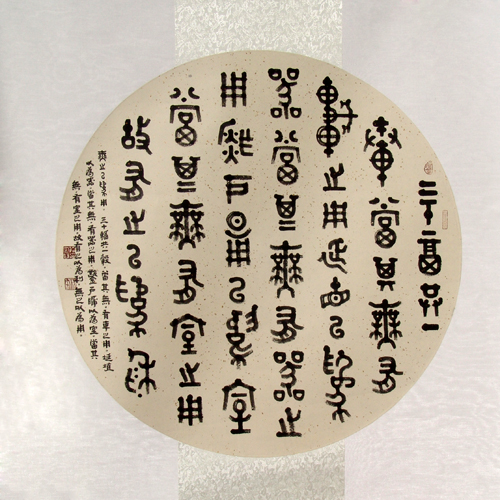 三十輻共一
轂當其無有
車之用埏埴以為
器當其無有器之
用鑿戶牖以為室
當其無有室之用
故有之以為利
無之以為用。三十輻共一轂，當其無，有車之用，埏埴
以為器，當其無，有器之用，鑿戶牖以為室，當其
無，有室之用，故有之以為利，無之以為用。